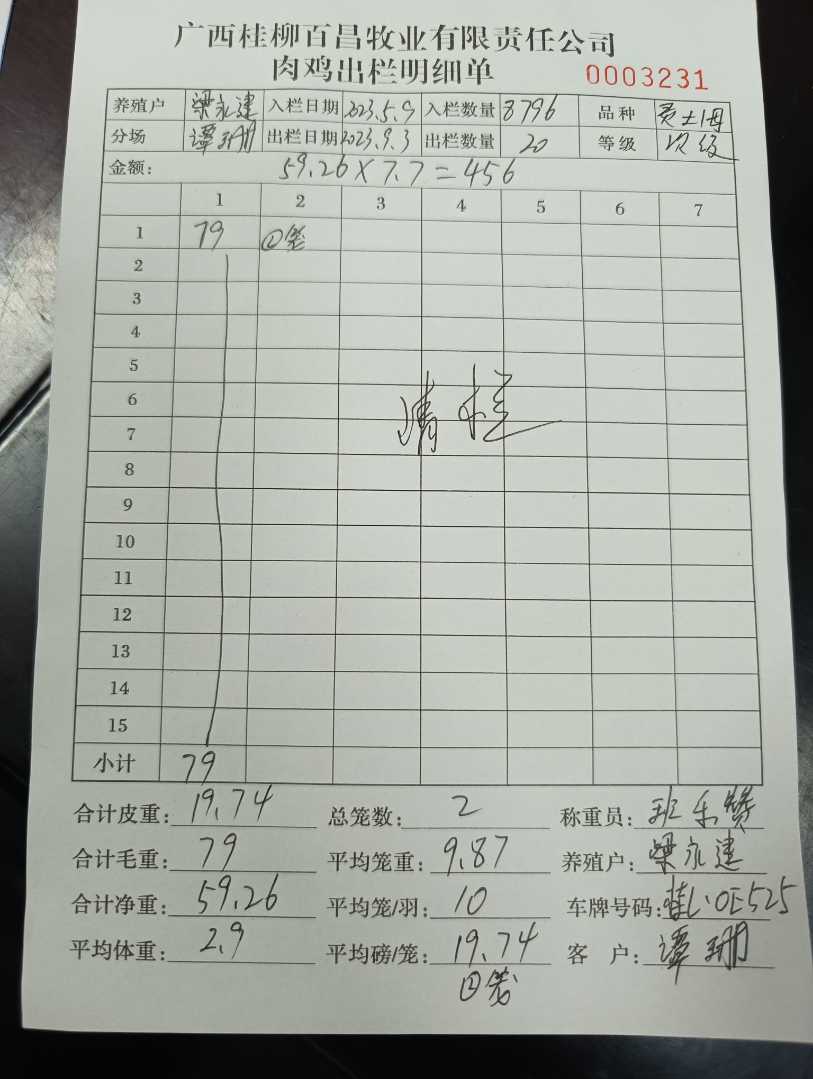 广西桂柳百昌牧业有限责任公司
肉鸡出栏明细单 0003231
养殖户 梁永建 入栏日期 2023.5.9 入栏数量 8796 品种
分场 谭珊 出栏日期 2023.9.3 出栏数量 20 等级 次级
金额: 59.26×7.7=456
1 2 3 4 5 6 7
1 79 ②笼
2
3
4
5
6
7
8
9
10
11
12
13
14
15
小计 79
合计皮重: 19.74 总笼数: 2 称重员:
合计毛重: 79 平均笼重: 9.87 养殖户: 梁永建
合计净重: 59.26 平均笼/羽: 10 车牌号码: 桂L·0E525
平均体重: 2.9 平均磅/笼: 19.74 客 户: 谭珊
②笼